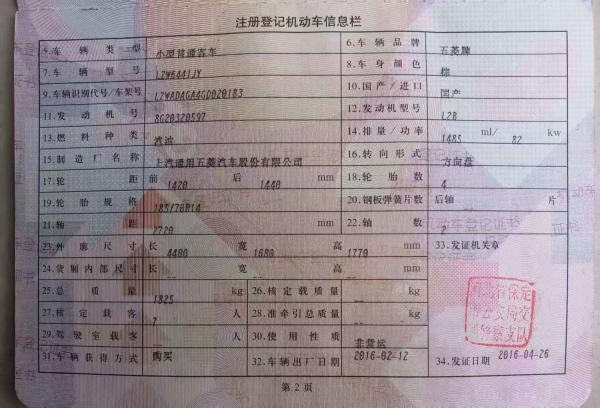 注册登记机动车信息栏
5.车辆类型 小型普通客车 6.车辆品牌 五菱牌
7.车辆型号 LZW6441JY 8.车身颜色 棕
9.车辆识别代号/车架号 LZWADAGA4GD020183 10.国产/进口 国产
11.发动机号 8G20320597 12.发动机型号 L2B
13.燃料种类 汽油 14.排量/功率 1485 ml/ 82 kw
15.制造厂名称 上汽通用五菱汽车股份有限公司 16.转向形式 方向盘
17.轮距 前 1420 后 1440 mm 18.轮胎数 4
19.轮胎规格 185/70R14 20.钢板弹簧片数 后轴 片
21.轴距 2720 mm 22.轴数 2
23.外廓尺寸 长 4400 宽 1680 高 1770 mm 33.发证机关章
24.货厢内部尺寸 长 -- 宽 -- 高 -- mm
25.总质量 1825 kg 26.核定载质量 -- kg
27.核定载客 7 人 28.准牵引总质量 -- kg
29.驾驶室载客 -- 人 30.使用性质 非营运
31.车辆获得方式 购买 32.车辆出厂日期 2016-02-12 34.发证日期 2016-04-26
河北省保定
市公安局交
通警察支队
第2页